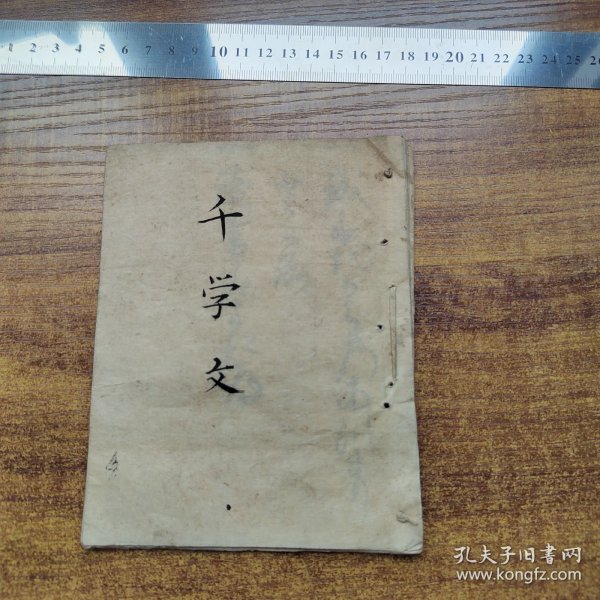 1 2 3 4 5 6 7 8 9 10 11 12 13 14 15 16 17 18 19 20 21 22 23 24 25 26
千学文
孔夫子旧書网
www.kongfz.com